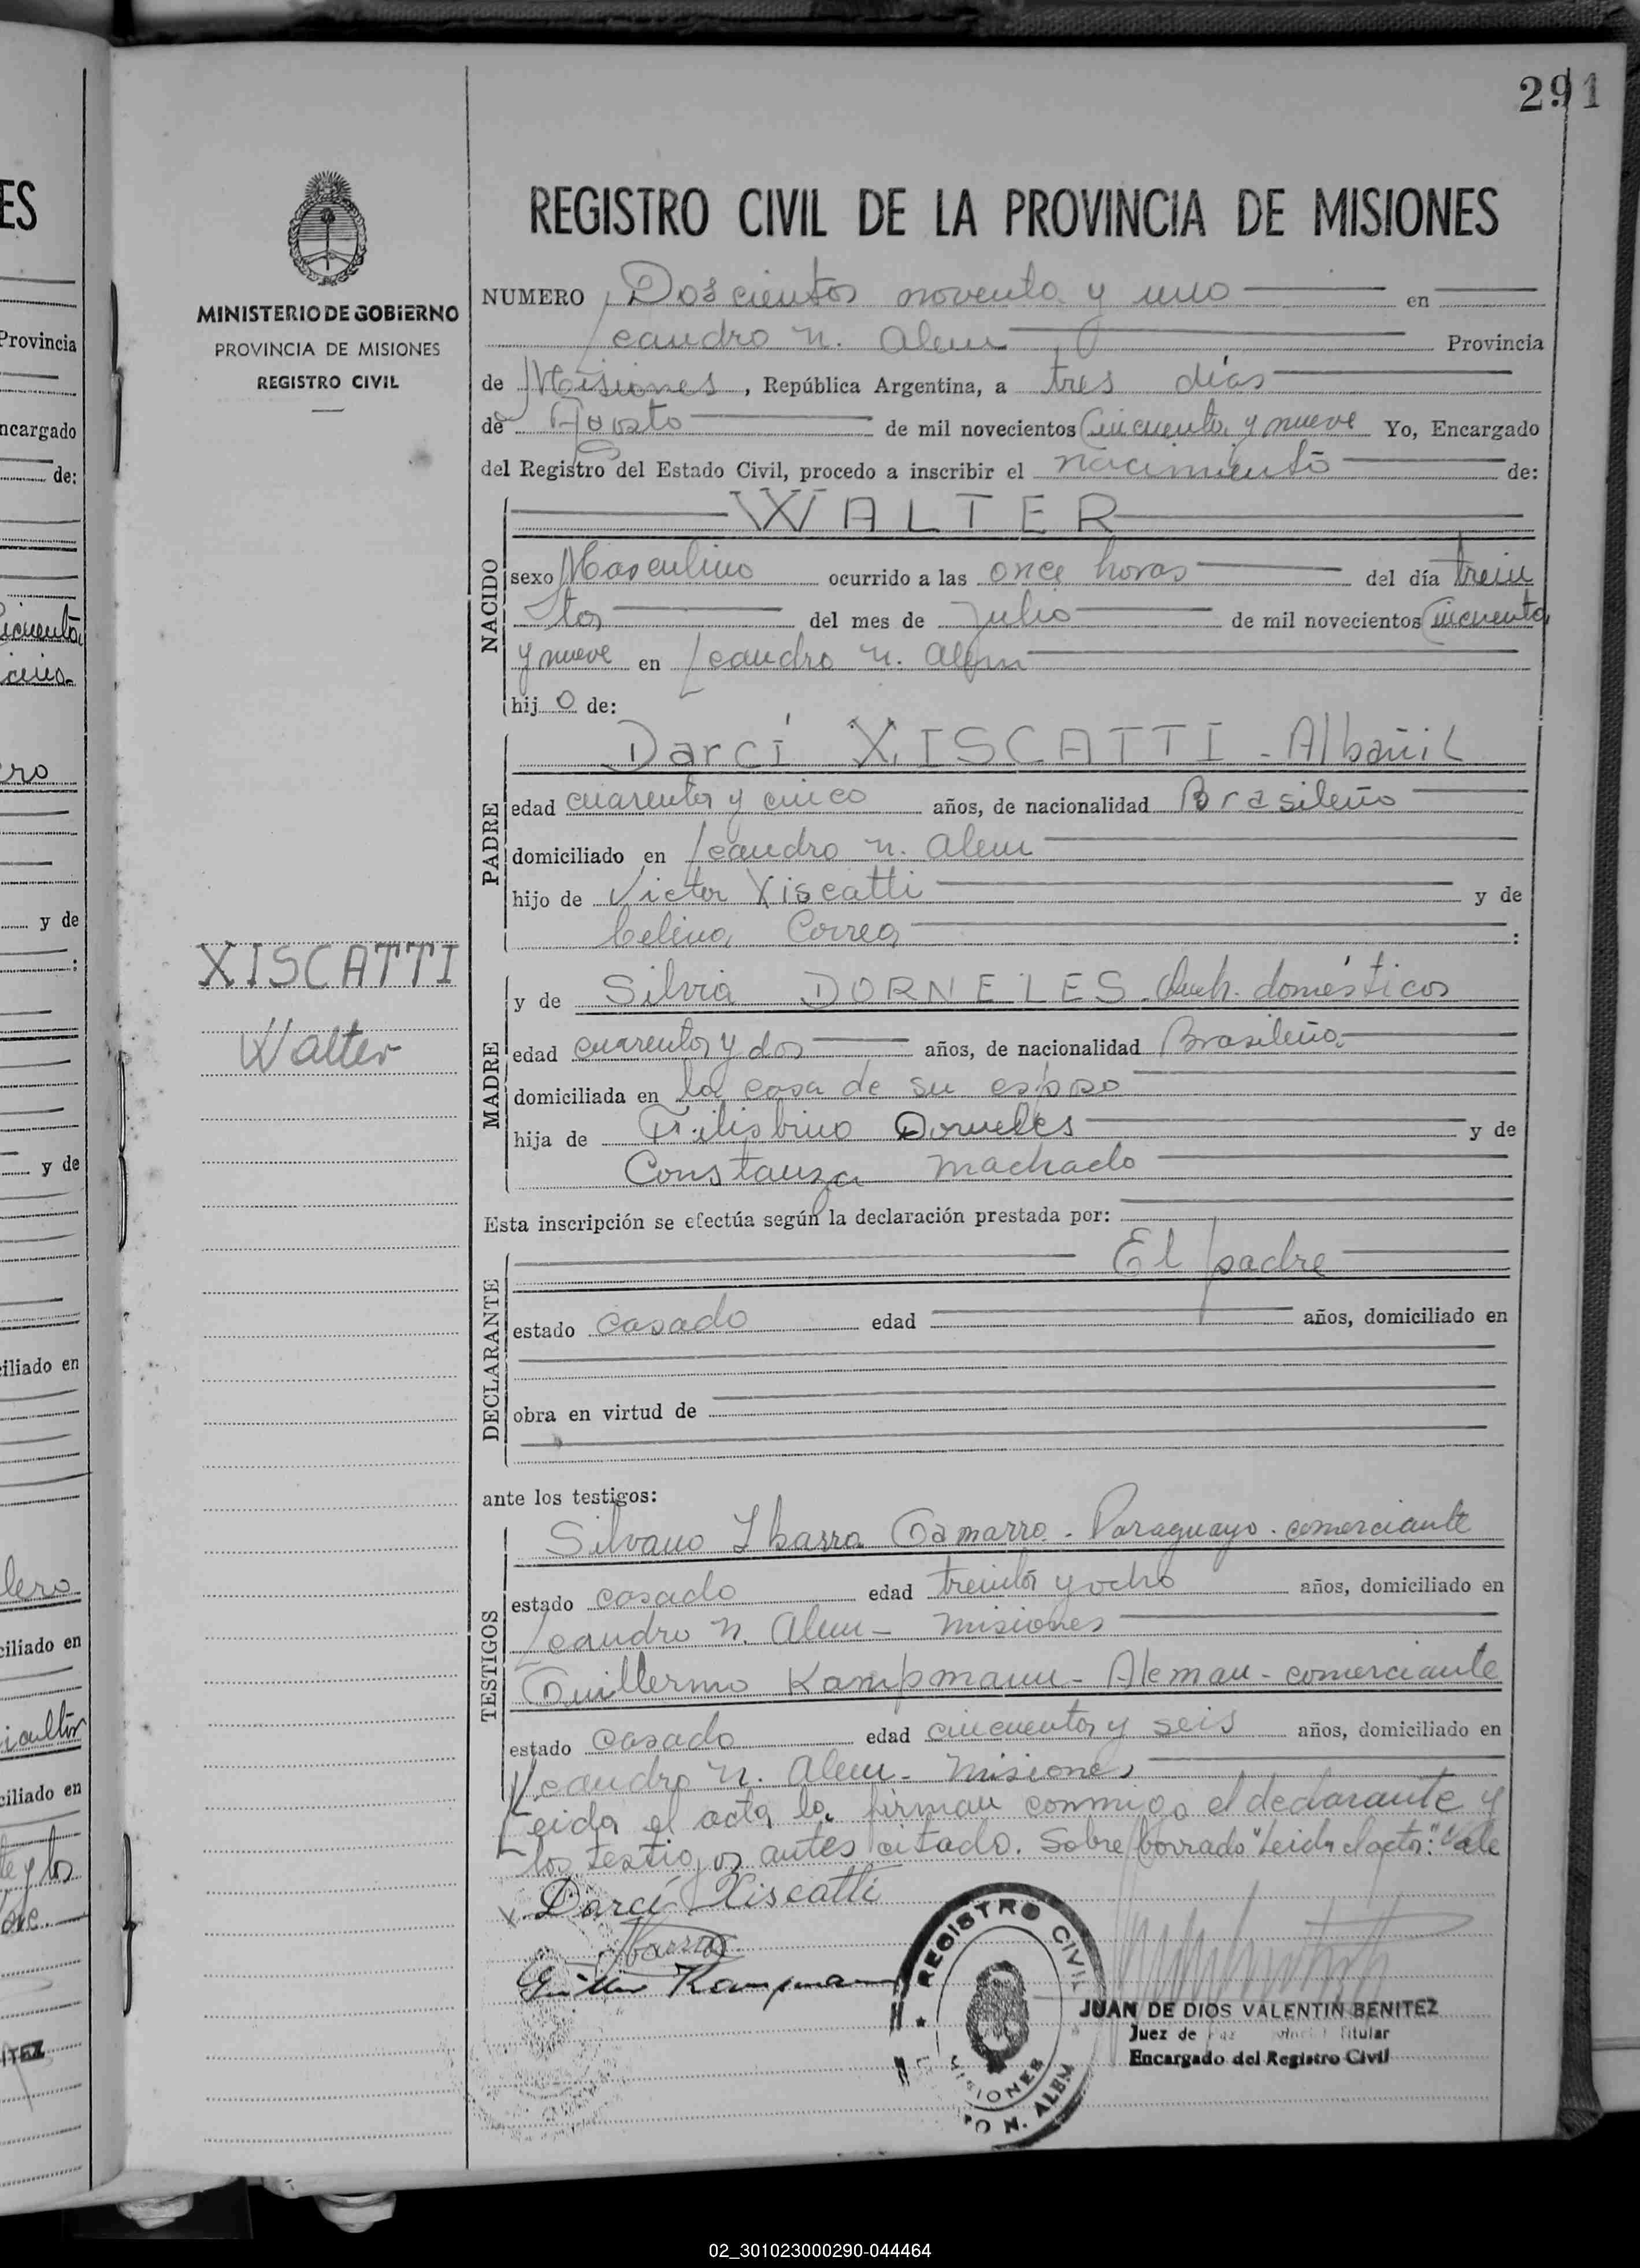 291
MINISTERIO DE GOBIERNO
PROVINCIA DE MISIONES
REGISTRO CIVIL
XISCATTI
Walter
REGISTRO CIVIL DE LA PROVINCIA DE MISIONES
NUMERO Doscientos noventa y uno en
Leandro N. Alem Provincia
de Misiones, República Argentina, a tres días
de Agosto de mil novecientos Cincuenta y nueve Yo, Encargado
del Registro del Estado Civil, procedo a inscribir el nacimiento de:
NACIDO
WALTER
sexo Masculino ocurrido a las once horas del día trein
ta del mes de Julio de mil novecientos Cincuenta
y nueve en Leandro N. Alem
hijo de:
PADRE
Darcí XISCATTI - Albañil
edad cuarenta y cinco años, de nacionalidad Brasileño
domiciliado en Leandro N. Alem
hijo de Victor Xiscatti y de
Celina Correa :
MADRE
y de Silvia DORNELES - Queh. domésticos
edad cuarenta y dos años, de nacionalidad Brasileña
domiciliada en la casa de su esposo
hija de Filisbino Dorneles y de
Constanza Machado
Esta inscripción se efectúa según la declaración prestada por:
DECLARANTE
El padre
estado casado edad años, domiciliado en
obra en virtud de
ante los testigos:
TESTIGOS
Silvano Ibarra Gamarra - Paraguayo - comerciante
estado casado edad treinta y ocho años, domiciliado en
Leandro N. Alem - Misiones
Guillermo Kampmann - Aleman - comerciante
estado casado edad cincuenta y seis años, domiciliado en
Leandro N. Alem - Misiones
Leida el acta la firman conmigo el declarante y
los testigos antes citado. Sobre borrado "Leida el acta": Vale
Darcí Xiscatti
Ibarra
Kampmann
REGISTRO CIVIL
MISIONES
O N. ALEM
JUAN DE DIOS VALENTIN BENITEZ
Juez de Paz Titular
Encargado del Registro Civil
ES
Provincia
ncargado
de:
y de
y de
iliado en
ciliado en
ciliado en
ITEZ
02_301023000290-044464